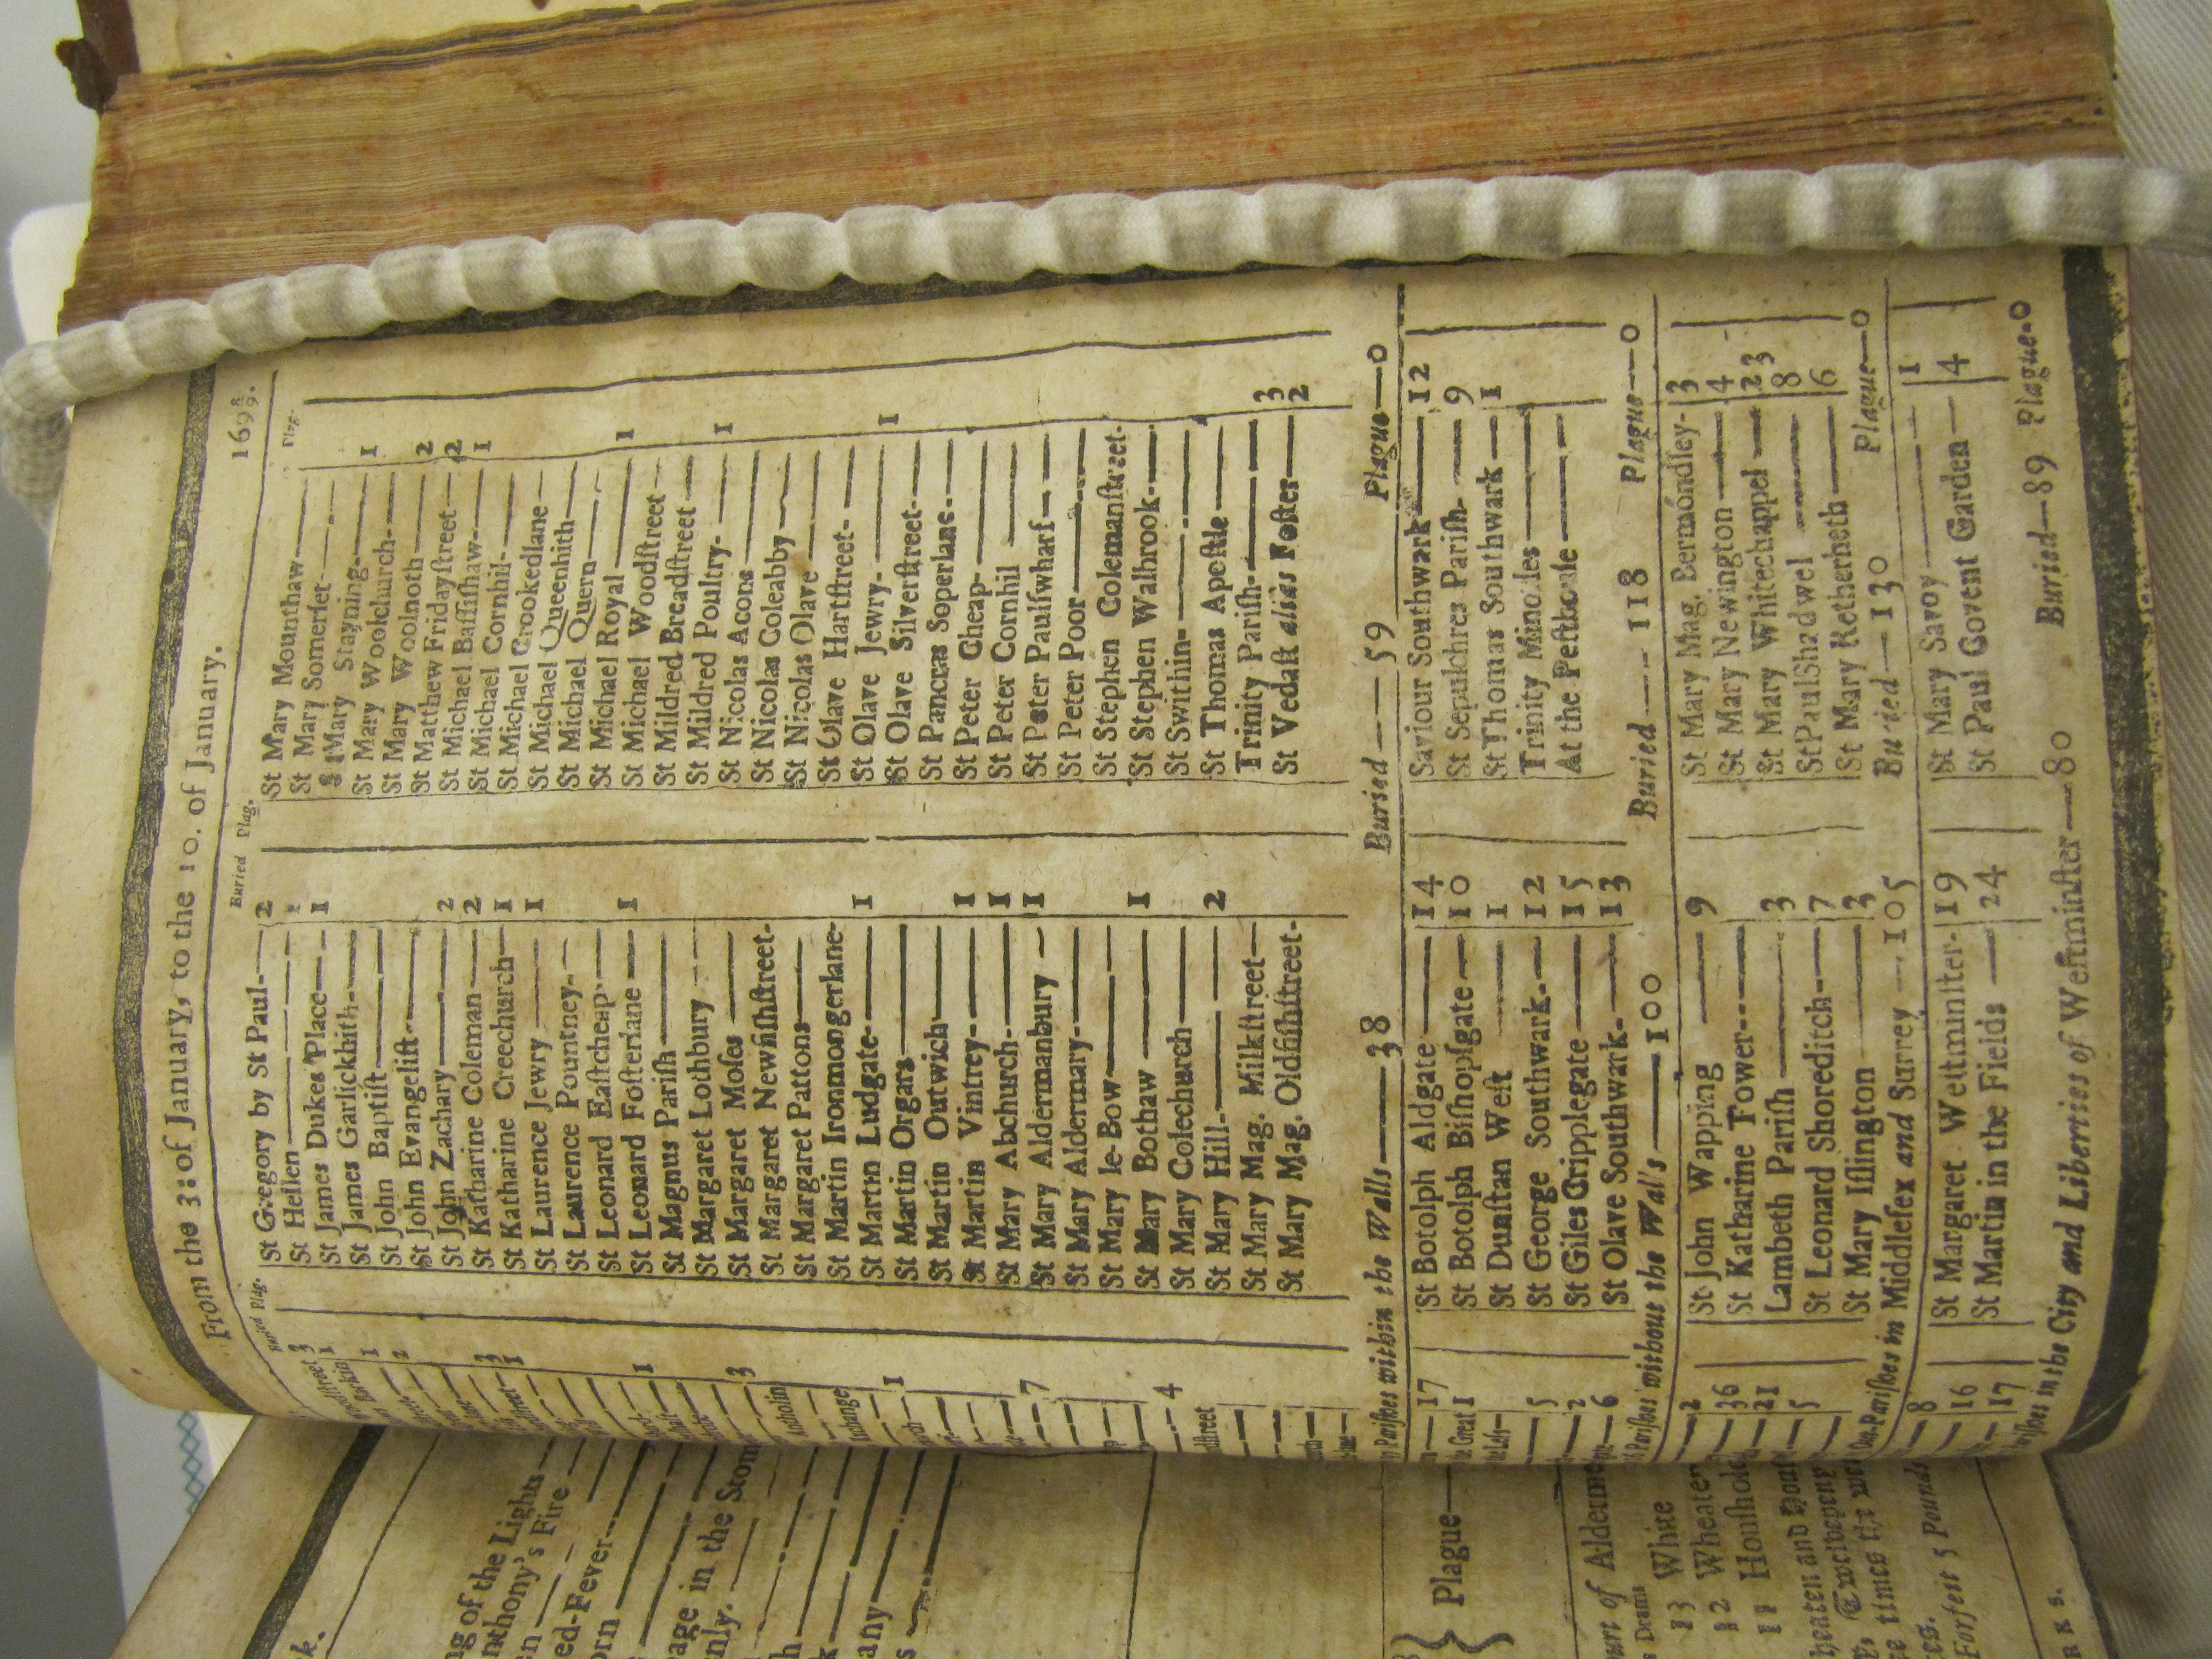 From the 3: of January, to the 10. of January. 1698/9.
Buried Plag. Buried Plag. Plag.
St Gregory by St Paul-—2
St Hellen————1
St James Dukes Place—1
St James Garlickhith-—
St John Baptiſt———
St John Evangeliſt-——
St John Zachary———2
St Katharine Coleman—2
St Katharine Creechurch—1
St Laurence Jewry———1
St Laurence Pountney-—
St Leonard Eaſtcheap-—
St Leonard Foſterlane—1
St Magnus Pariſh———
St Margaret Lothbury——
St Margaret Moſes——
St Margaret Newfiſhſtreet-
St Margaret Pattons——
St Martin Ironmongerlane-
St Martin Ludgate-——1
St Martin Orgars———
St Martin Outwich——
St Martin Vintrey-——1
St Mary Abchurch-——1
St Mary Aldermanbury—1
St Mary Aldermary-——
St Mary le-Bow———
St Mary Bothaw———1
St Mary Colechurch——
St Mary Hill-———2
St Mary Mag. Milkſtreet—
St Mary Mag. Oldfiſhſtreet-
St Mary Mounthaw——
St Mary Somerſet-——
St Mary Stayning-——1
St Mary Woolchurch-—
St Mary Woolnoth——2
St Matthew Fridayſtreet—2
St Michael Baſſiſhaw-—1
St Michael Cornhil-——
St Michael Crookedlane—
St Michael Queenhith—
St Michael Quern——
St Michael Royal——1
St Michael Woodſtreet—
St Mildred Breadſtreet—
St Mildred Poultry-——1
St Nicolas Acons——
St Nicolas Coleabby——
St Nicolas Olave——
St Olave Hartſtreet-——
St Olave Jewry-——1
St Olave Silverſtreet-—
St Pancras Soperlane-—
St Peter Cheap-——
St Peter Cornhil——
St Peter Paulſwharf——
St Peter Poor———
St Stephen Colemanſtreet-
St Stephen Walbrook-—
St Swithin-———
St Thomas Apoſtle——
Trinity Pariſh-——3
St Vedaſt alias Foſter—2
Pariſhes within the Walls——38 Buried——59 Plague—0
17
St Botolph Aldgate——14
St Botolph Biſhopſgate—10
St Dunſtan Weſt——1
St George Southwark-—12
St Giles Cripplegate——15
St Olave Southwark-—13
Saviour Southwark——12
St Sepulchres Pariſh-—9
St Thomas Southwark—1
Trinity Minories——
At the Peſthouſe——
Pariſhes without the Wal's——100 Buried——118 Plague—0
2
36
21
5
St John Wapping——9
St Katharine Tower-——
Lambeth Pariſh——3
St Leonard Shoreditch—7
St Mary Iſlington——3
St Mary Mag. Bermondſey-3
St Mary Newington—4
St Mary Whitechappel—23
St Paul Shadwel——8
St Mary Retherheth——6
Out-Pariſhes in Middleſex and Surrey—105 Buried—130 Plague—0
8
16
17
St Margaret Weſtminſter-19
St Martin in the Fields—24
St Mary Savoy——1
St Paul Covent Garden—4
Pariſhes in the City and Liberties of Weſtminſter—80 Buried—89 Plague-0
of the Lights
nthony's Fire
ed-Fever
orn
age in the Stom
nly.
any
Plague—
Court of Alderme
Drams
13 White
12 Wheaten
Houſhold
heaten and
Forfeit 5 Pounds